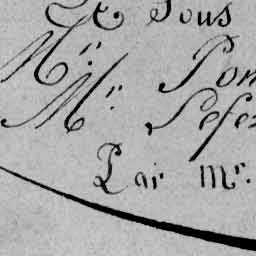 & Sous
Mr. Pon
Mr. Lefe
Par Mr.